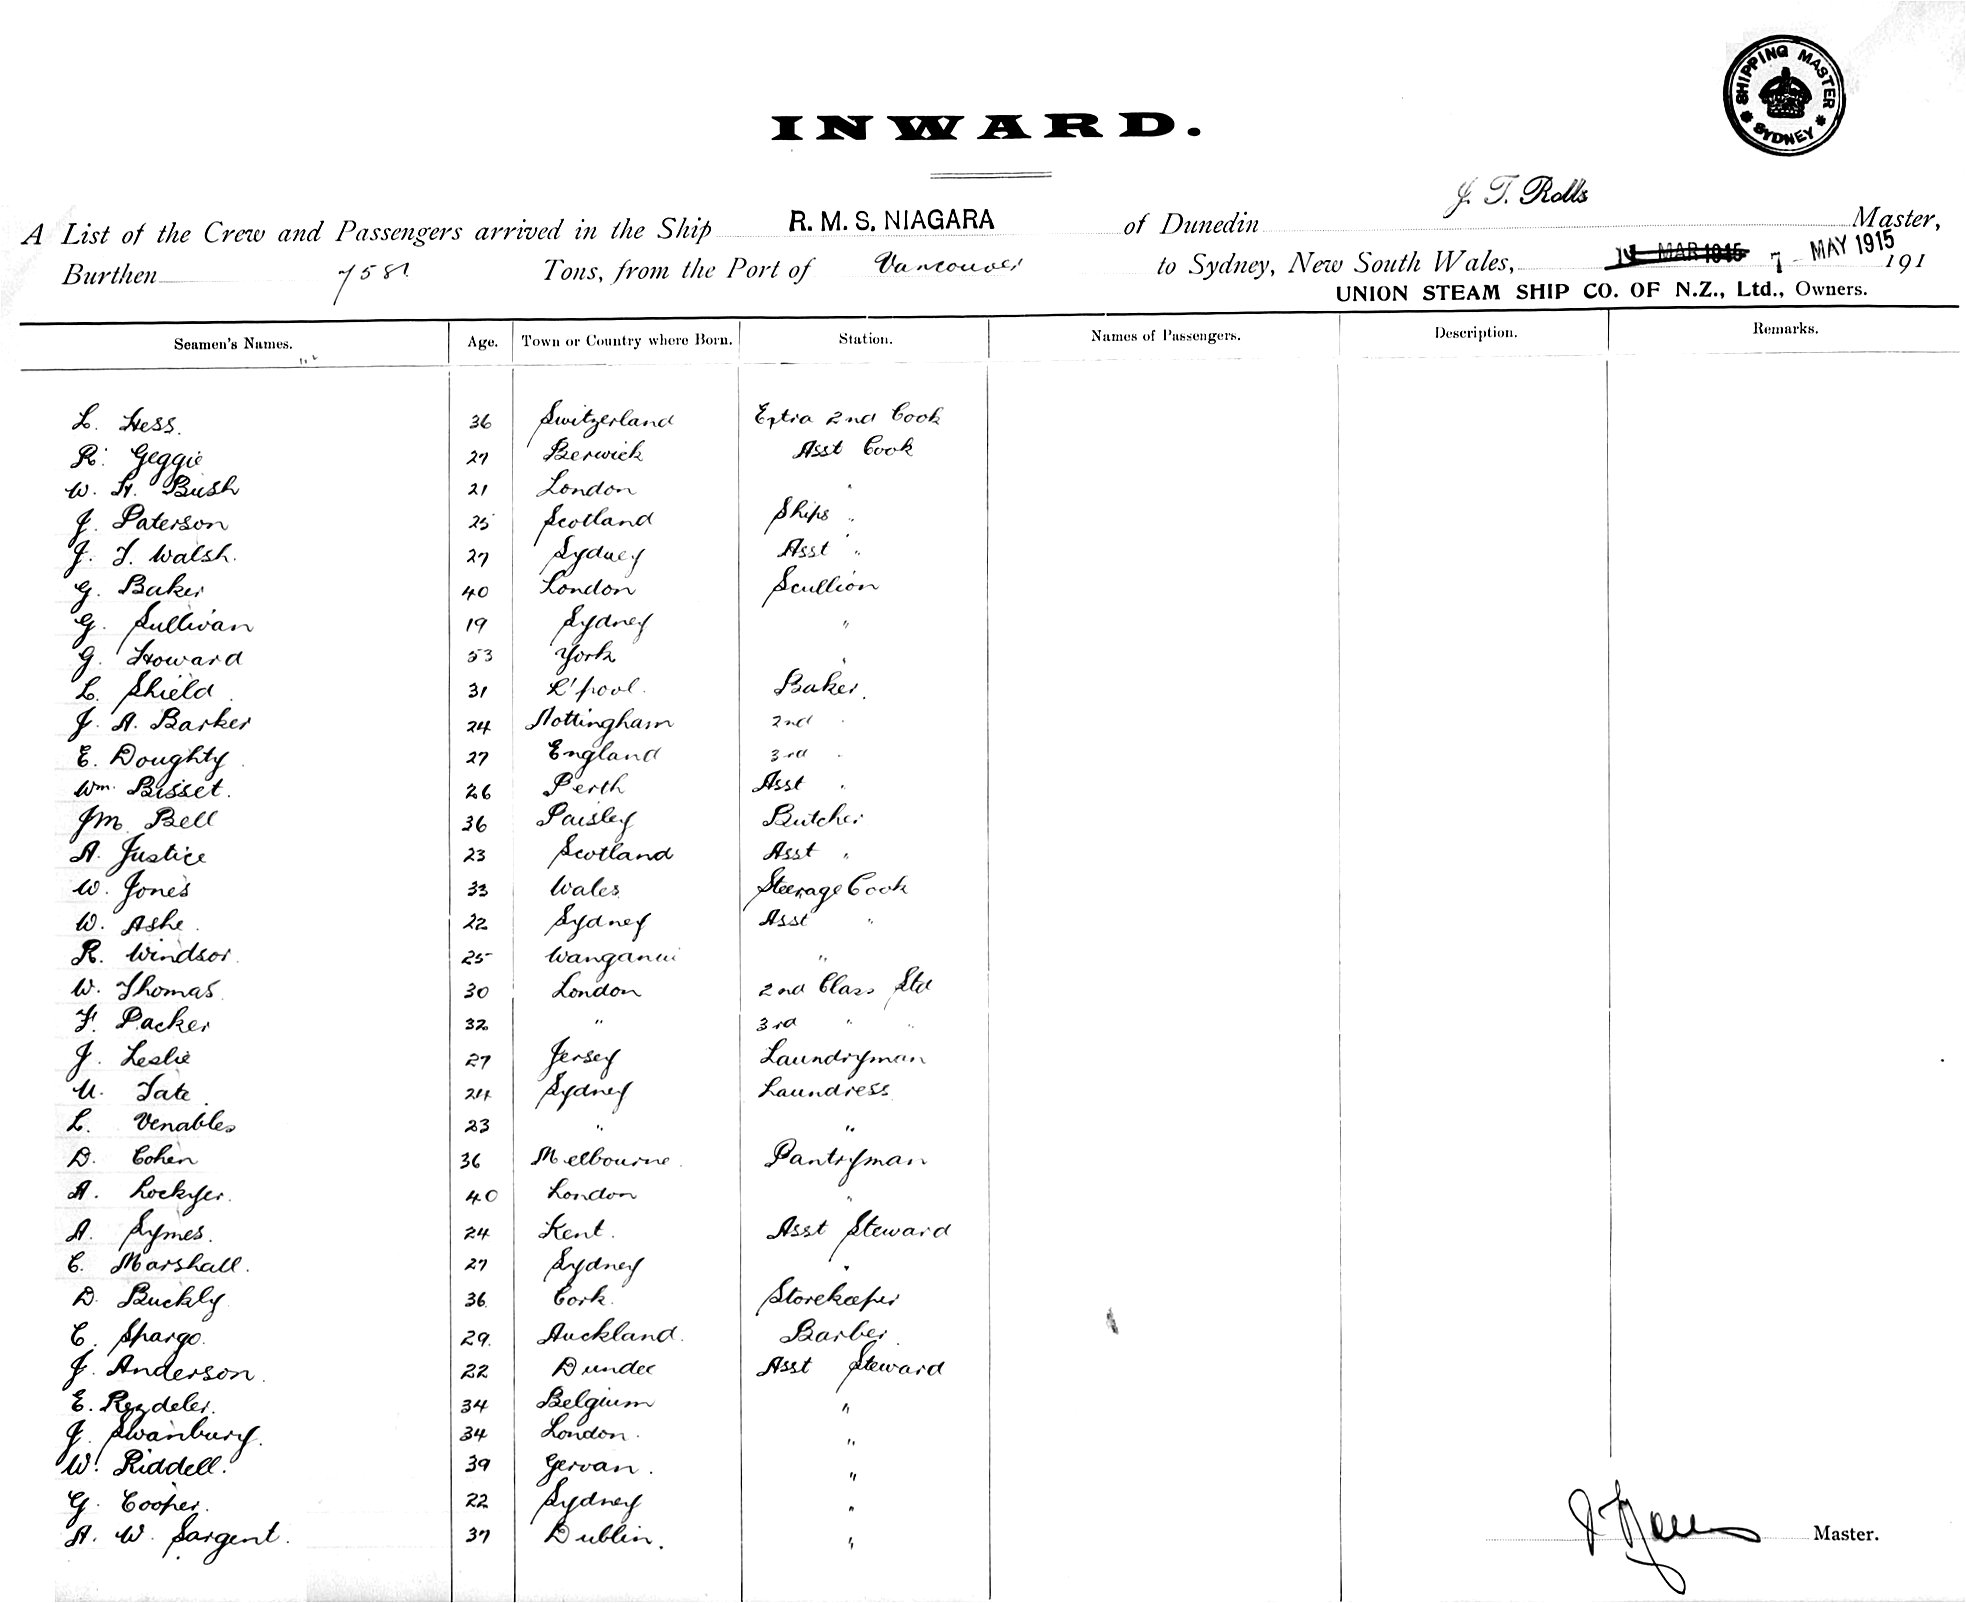 SHIPPING MASTER
* SYDNEY *
INWARD.
J. T. Rolls
A List of the Crew and Passengers arrived in the Ship R. M. S. NIAGARA of Dunedin Master,
Burthen 7581 Tons, from the Port of Vancouver to Sydney, New South Wales, 14 MAR 1915 7 - MAY 1915 191
UNION STEAM SHIP CO. OF N.Z., Ltd., Owners.
Seamen's Names. Age. Town or Country where Born. Station. Names of Passengers. Description. Remarks.
L. Hess. 36 Switzerland Extra 2nd Cook
R. Geggie 27 Berwick Asst Cook
W. H. Bush 21 London "
J. Paterson 25 Scotland Ships "
J. T. Walsh. 27 Sydney Asst "
G. Baker 40 London Scullion
G. Sullivan 19 Sydney "
G. Howard 53 York "
L. Shield 31 L'pool. Baker.
J. A. Barker 24 Nottingham 2nd "
E. Doughty 27 England 3rd "
Wm. Bisset. 26 Perth Asst "
JM Bell 36 Paisley Butcher
A. Justice 23 Scotland Asst "
W. Jones 33 Wales Steerage Cook
W. Ashe. 22 Sydney Asst "
R. Windsor. 25 Wanganui "
W. Thomas 30 London 2nd Class Std
F. Packer 32 " 3rd " "
J. Leslie 27 Jersey Laundryman
U. Tate 24 Sydney Laundress
L. Venables 23 " "
D. Cohen 36 Melbourne. Pantryman
A. Lockyer. 40 London "
A. Symes. 24 Kent. Asst Steward
C. Marshall. 27 Sydney "
D. Buckly 36 Cork. Storekeeper
C. Spargo. 29. Auckland. Barber
J. Anderson. 22 Dundee Asst Steward
E. 34 Belgium "
J. Swanbury. 34 London. "
W. Riddell. 39 Gervan. "
G. Cooper. 22 Sydney "
A. W. Sargent. 37 Dublin. "
Master.